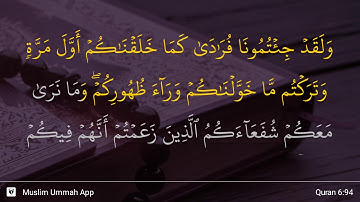 وَلَقَدۡ جِئۡتُمُونَا فُرَٰدَىٰ كَمَا خَلَقۡنَٰكُمۡ أَوَّلَ مَرَّةٖ
وَتَرَكۡتُم مَّا خَوَّلۡنَٰكُمۡ وَرَآءَ ظُهُورِكُمۡۖ وَمَا نَرَىٰ
مَعَكُمۡ شُفَعَآءَكُمُ ٱلَّذِينَ زَعَمۡتُمۡ أَنَّهُمۡ فِيكُمۡ
Muslim Ummah App
Quran 6:94